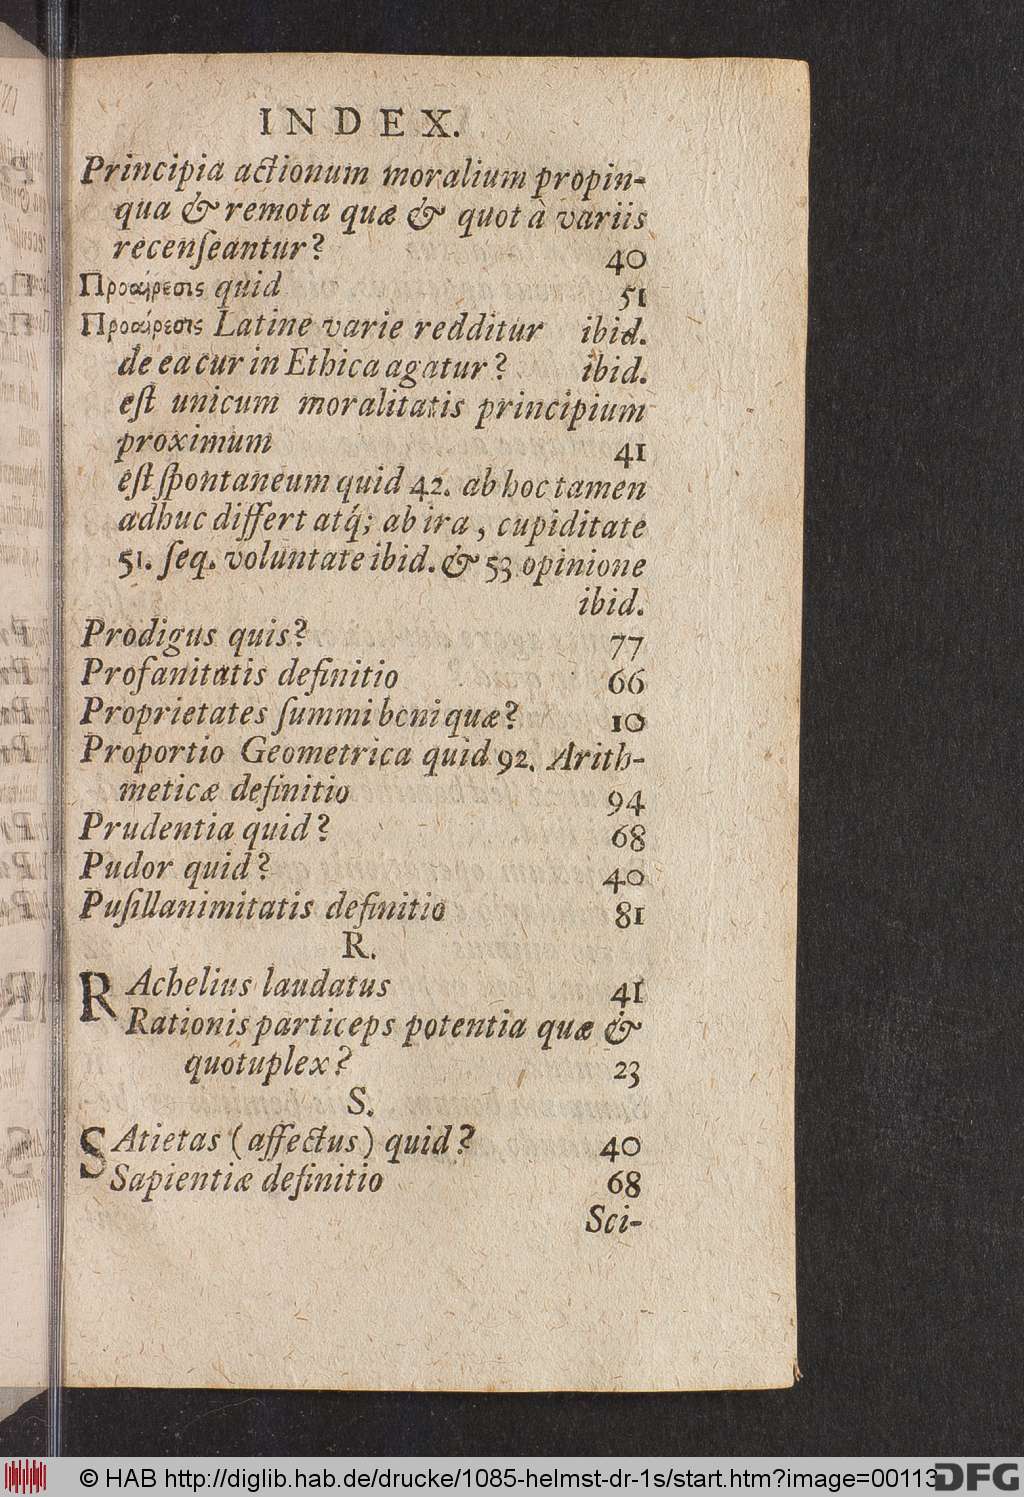 INDEX.
Principia actionum moralium propin-
qua & remota quæ & quot à variis
recenſeantur? 40
Προαίρεσις quid 51
Προαίρεσις Latine varie redditur ibid.
de ea cur in Ethica agatur? ibid.
eſt unicum moralitatis principium
proximum 41
eſt ſpontaneum quid 42. ab hoc tamen
adhuc differt atq́; ab ira, cupiditate
51. ſeq. voluntate ibid. & 53 opinione
ibid.
Prodigus quis? 77
Profanitatis definitio 66
Proprietates ſummi boni quæ? 10
Proportio Geometrica quid 92. Arith-
meticæ definitio 94
Prudentia quid? 68
Pudor quid? 40
Puſillanimitatis definitio 81
R.
RAchelius laudatus 41
Rationis particeps potentia quæ &
quotuplex? 23
S.
SAtietas (affectus) quid? 40
Sapientiæ definitio 68
Sci-
© HAB http://diglib.hab.de/drucke/1085-helmst-dr-1s/start.htm?image=00113
DFG